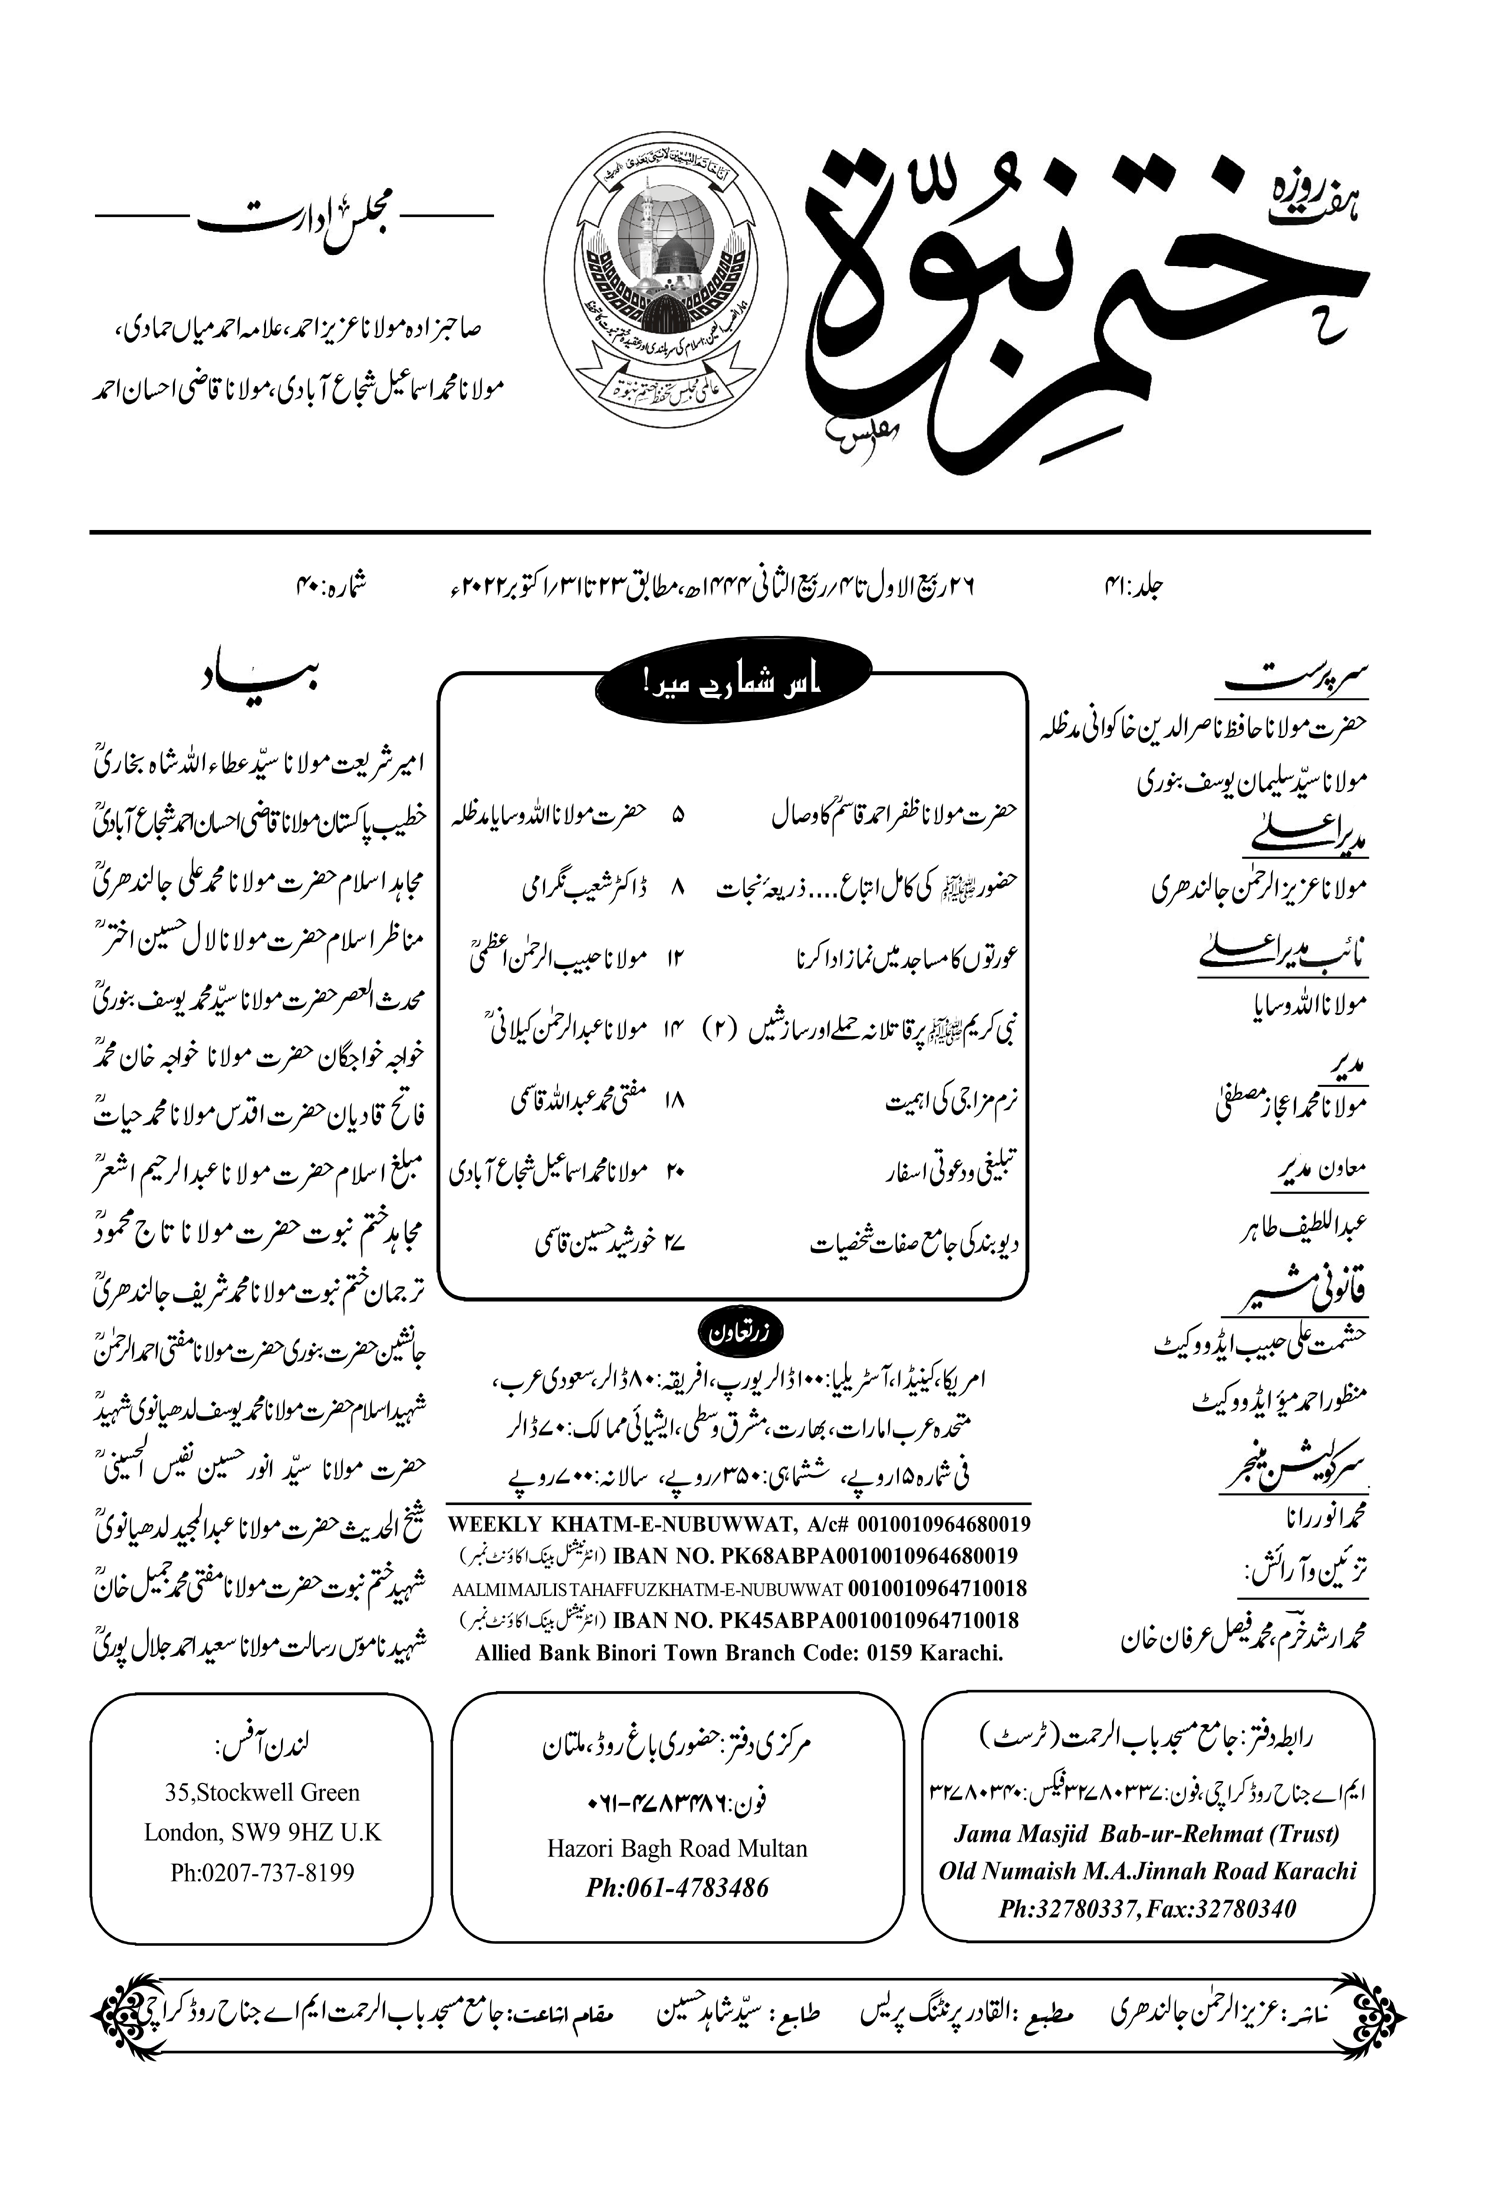 ہفت روزہ
ختم نبوّۃ
مجلس ادارت
صاحبزادہ مولانا عزیز احمد، علامہ احمد میاں حمادی،
مولانا محمد اسماعیل شجاع آبادی، مولانا قاضی احسان احمد
انا خاتم النبیین لا نبی بعدی
عالمی مجلس تحفظ ختم نبوۃ
جلد: ۴۱
۲۶ ربیع الاول تا ۴ ربیع الثانی ۱۴۴۴ھ، مطابق ۲۳ تا ۳۱؍اکتوبر ۲۰۲۲ء
شمارہ: ۴۰
سرپرست
حضرت مولانا حافظ ناصر الدین خاکوانی مدظلہ
مولانا سیّد سلیمان یوسف بنوری
مدیر اعلیٰ
مولانا عزیز الرحمٰن جالندھری
نائب مدیر اعلیٰ
مولانا اللہ وسایا
مدیر
مولانا محمد اعجاز مصطفیٰ
معاون مدیر
عبداللطیف طاہر
قانونی مشیر
حشمت علی حبیب ایڈووکیٹ
منظور احمد میؤ ایڈووکیٹ
سرکولیشن مینجر
محمد انور رانا
تزئین و آرائش:
محمد ارشد خرّم، محمد فیصل عرفان خان
اس شمارے میں!
حضرت مولانا ظفر احمد قاسمؒ کا وصال ۵ حضرت مولانا اللہ وسایا مدظلہ
حضور ﷺ کی کامل اتباع.... ذریعۂ نجات ۸ ڈاکٹر شعیب نگرامی
عورتوں کا مساجد میں نماز ادا کرنا ۱۲ مولانا حبیب الرحمٰن اعظمیؒ
نبی کریم ﷺ پر قاتلانہ حملے اور سازشیں (۲) ۱۴ مولانا عبدالرحمٰن کیلانیؒ
نرم مزاجی کی اہمیت ۱۸ مفتی محمد عبداللہ قاسمی
تبلیغی و دعوتی اسفار ۲۰ مولانا محمد اسماعیل شجاع آبادی
دیوبند کی جامع صفات شخصیات ۲۷ خورشید حسین قاسمی
زرتعاون
امریکا، کینیڈا، آسٹریلیا: ۱۰۰ ڈالر یورپ، افریقہ: ۸۰ ڈالر، سعودی عرب،
متحدہ عرب امارات، بھارت، مشرق وسطی، ایشیائی ممالک: ۷۰ ڈالر
فی شمارہ ۱۵ روپے، ششماہی: ۳۵۰؍روپے، سالانہ: ۷۰۰ روپے
WEEKLY KHATM-E-NUBUWWAT, A/c# 0010010964680019
IBAN NO. PK68ABPA0010010964680019 (انٹرنیشنل بینک اکاؤنٹ نمبر)
AALMI MAJLIS TAHAFFUZ KHATM-E-NUBUWWAT 0010010964710018
IBAN NO. PK45ABPA0010010964710018 (انٹرنیشنل بینک اکاؤنٹ نمبر)
Allied Bank Binori Town Branch Code: 0159 Karachi.
بیاد
امیر شریعت مولانا سیّد عطاء اللہ شاہ بخاریؒ
خطیب پاکستان مولانا قاضی احسان احمد شجاع آبادیؒ
مجاہد اسلام حضرت مولانا محمد علی جالندھریؒ
مناظر اسلام حضرت مولانا لال حسین اخترؒ
محدث العصر حضرت مولانا سیّد محمد یوسف بنوریؒ
خواجہ خواجگان حضرت مولانا خواجہ خان محمدؒ
فاتح قادیان حضرت اقدس مولانا محمد حیاتؒ
مبلغ اسلام حضرت مولانا عبدالرحیم اشعرؒ
مجاہد ختم نبوت حضرت مولانا تاج محمودؒ
ترجمان ختم نبوت مولانا محمد شریف جالندھریؒ
جانشین حضرت بنوری حضرت مولانا مفتی احمد الرحمٰنؒ
شہید اسلام حضرت مولانا محمد یوسف لدھیانوی شہیدؒ
حضرت مولانا سیّد انور حسین نفیس الحسینیؒ
شیخ الحدیث حضرت مولانا عبدالمجید لدھیانویؒ
شہید ختم نبوت حضرت مولانا مفتی محمد جمیل خانؒ
شہید ناموس رسالت مولانا سعید احمد جلال پوریؒ
رابطہ دفتر: جامع مسجد باب الرحمت (ٹرسٹ)
ایم اے جناح روڈ کراچی، فون: ۳۲۷۸۰۳۳۷ فیکس: ۳۲۷۸۰۳۴۰
Jama Masjid Bab-ur-Rehmat (Trust)
Old Numaish M.A.Jinnah Road Karachi
Ph:32780337, Fax:32780340
مرکزی دفتر: حضوری باغ روڈ، ملتان
فون: ۰۶۱-۴۷۸۳۴۸۶
Hazori Bagh Road Multan
Ph:061-4783486
لندن آفس:
35,Stockwell Green
London, SW9 9HZ U.K
Ph:0207-737-8199
ناشر: عزیز الرحمٰن جالندھری مطبع: القادر پرنٹنگ پریس طابع: سیّد شاہد حسین مقام اشاعت: جامع مسجد باب الرحمت ایم اے جناح روڈ کراچی